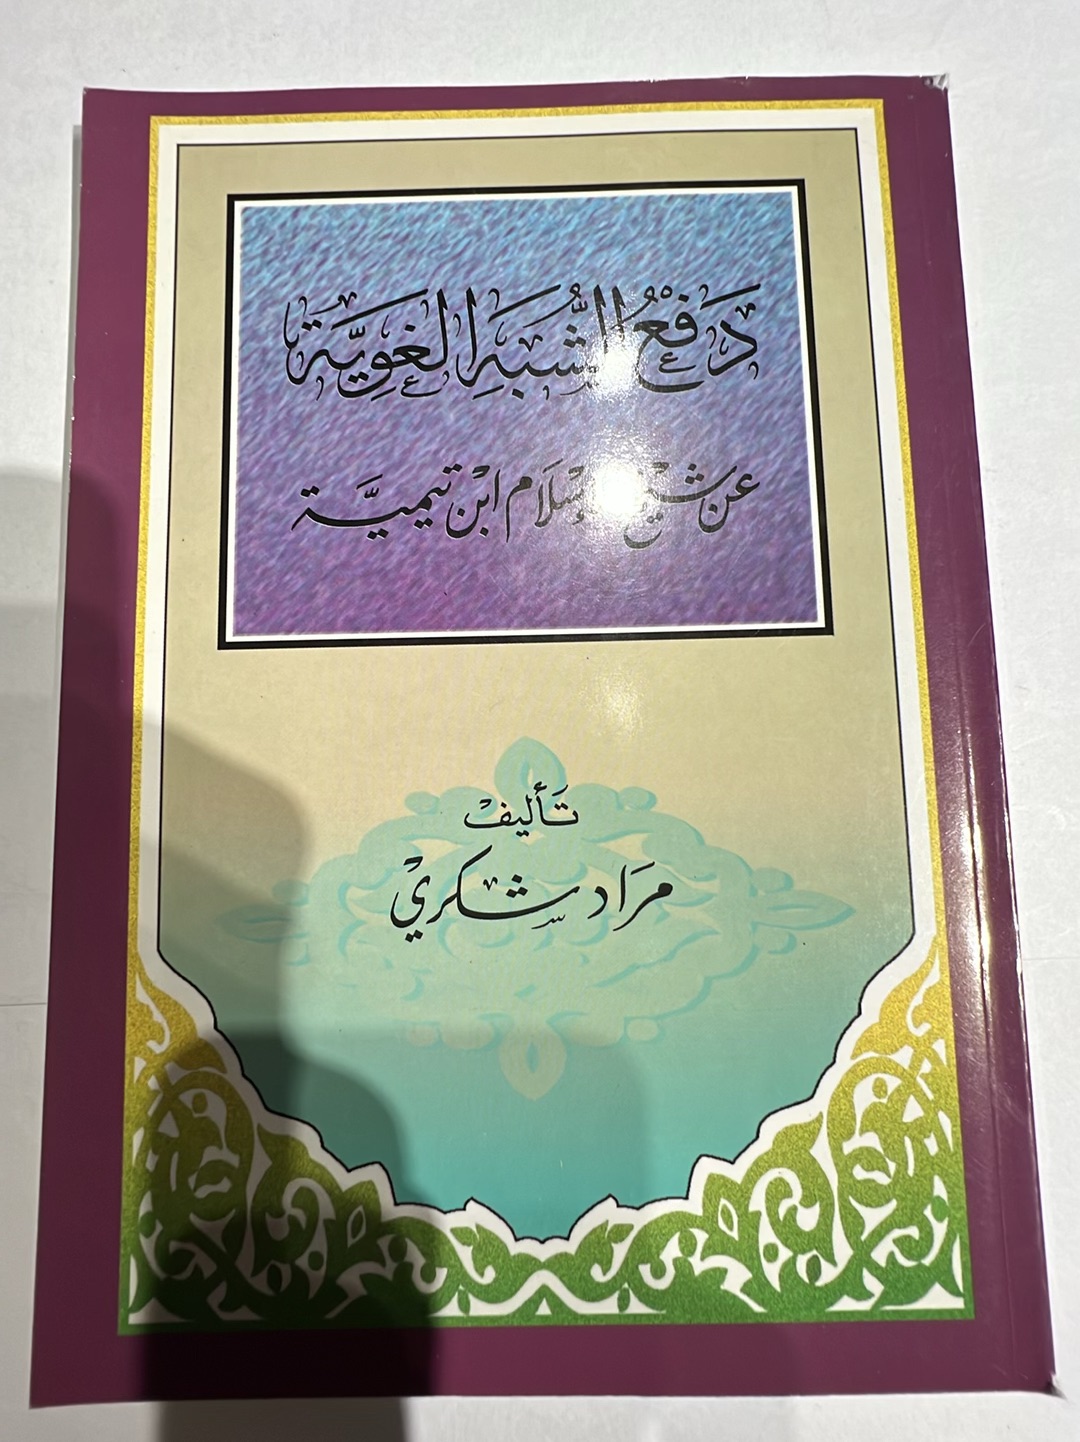 دَفْعُ الشُّبَهِ الغَوِيَّة
عَن شَيْخ الإِسْلَام ابْن تَيْمِيَّة
تَأْليفْ
مُرَاد شكري